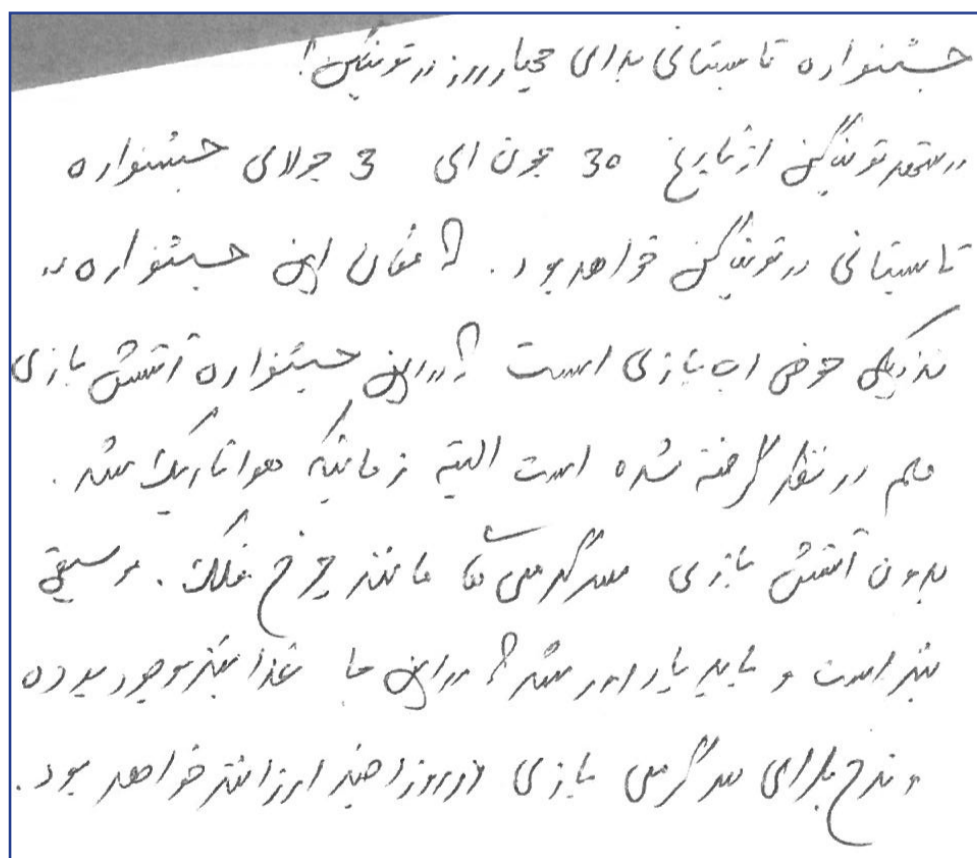 جشنواره تابستانی برای چهار روز در توینگن!
در شهر توینگن از تاریخ 30 جون الی 3 جولای جشنواره
تابستانی در توینگن خواهد بود. مکان این جشنواره در
نزدیکی حوض اب بازی است در این جشنواره آتش بازی
هم در نظر گرفته شده است البته زمانیکه هوا تاریک شد.
بدون آتش بازی سرگرمی ها مانند چرخ فلک. موسیقی
نیز است و باید یاداور شد در این جا غذا نیز موجود بوده
و نرخ برای سرگرمی بازی در روز اخیر ارزانتر خواهد بود.